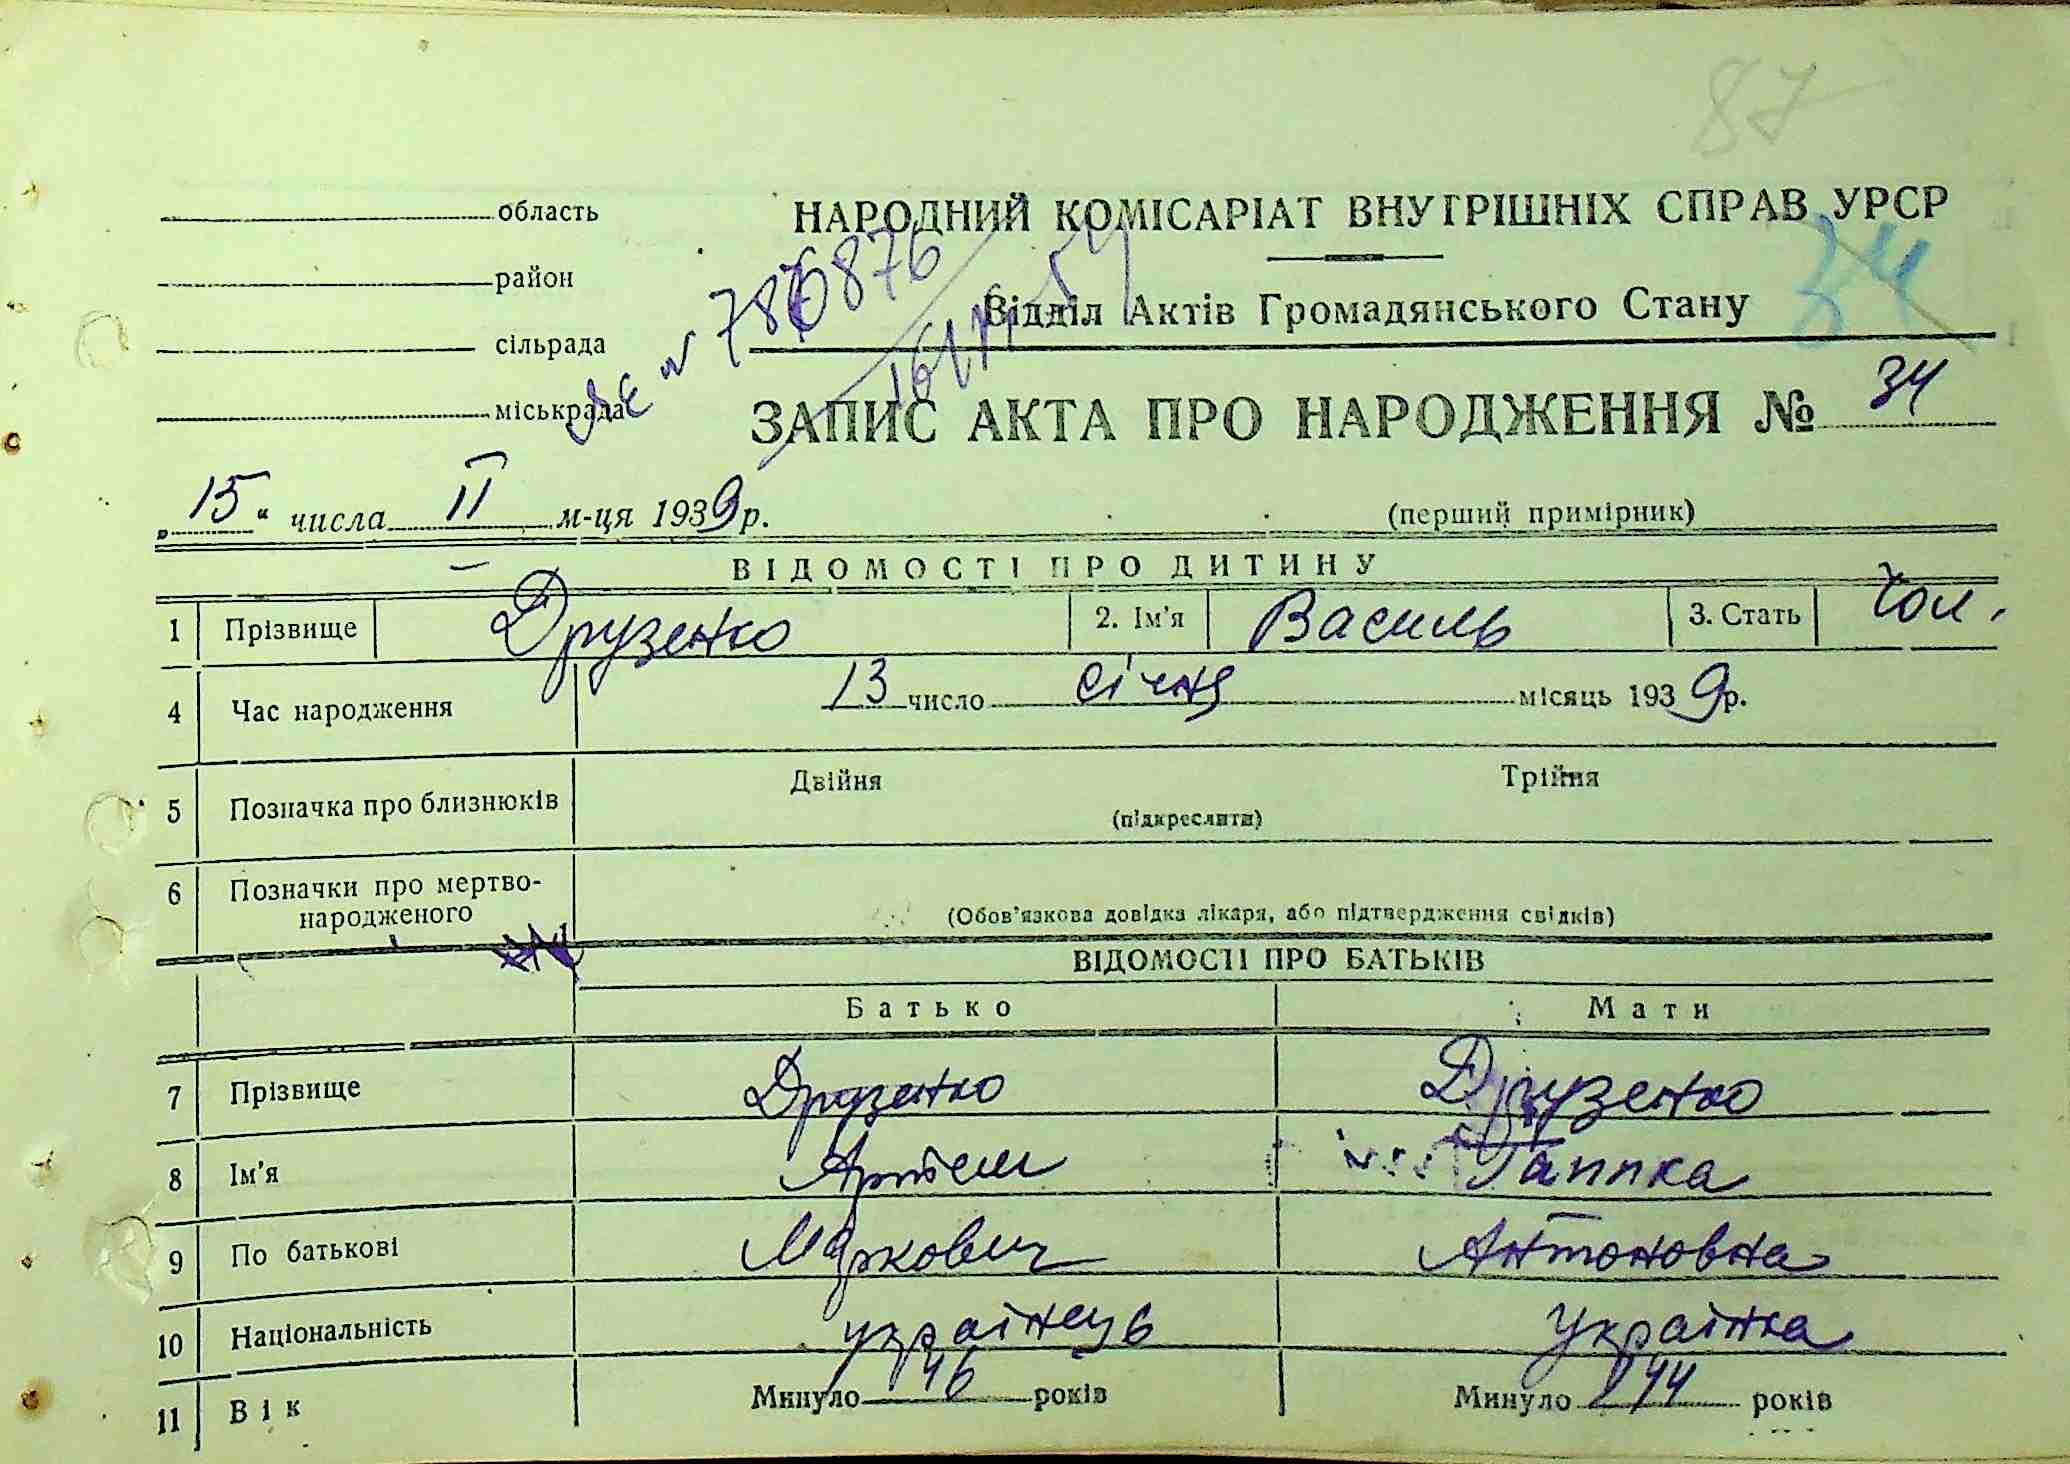 87
область
НАРОДНИЙ КОМІСАРІАТ ВНУТРІШНІХ СПРАВ УРСР
район
34
Відділ Актів Громадянського Стану
сільрада
міськрада
ЗАПИС АКТА ПРО НАРОДЖЕННЯ № 34
„15“ числа II м-ця 1939 р.
(перший примірник)
ВІДОМОСТІ ПРО ДИТИНУ
1 Прізвище Друзенко 2. Ім'я Василь 3. Стать Чол.
4 Час народження 13 число січня місяць 1939 р.
5 Позначка про близнюків Двійня Трійня
(підкреслити)
6 Позначки про мертво-
народженого
(Обов'язкова довідка лікаря, або підтвердження свідків)
ВІДОМОСТІ ПРО БАТЬКІВ
Батько Мати
7 Прізвище Друзенко Друзенко
8 Ім'я Артем Гаппка
9 По батькові Маркович Антоновна
10 Національність українець Українка
11 Вік Минуло 46 років Минуло 44 років